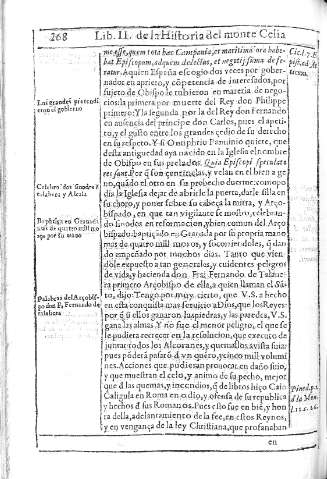 268 Lib. II. de la Historia del monte Celia
me esse, quem tota hæc Campania, et maritima ora habe-
bat Episcopum, ad quem delectus, et negotij summa defe-
ratur. A quien España escogio dos veces por gober-
nador en aprieto, y cōpetencia de interesados, por
sujeto de Obispo se tubieron en materia de nego-
cios: la primera por muerte del Rey don Philippe
primero: Y la segunda por la del Rey don Fernando
en ausencia del principe don Carlos, pues el apeti-
to, y el gusto entre los grandes cedio de su derecho
en su respeto. Y si Onuphrio Panuinio quiere, que
desta antiguedad aya nacido en la Iglesia el nombre
de Obispo en sus pelados. Quia Episcopi speculato
res sunt. Por q̄ son centinelas, y velan en el bien a ge-
no, quādo el otro en su prouecho duerme, como po
dia la Iglesia dejar de abrirle la puerta, darle silla en
su choro, y poner sobre su cabeça la mitra, y Arço-
bispado, en que tan vigilante se mostro, celebran-
do Sinodos en reformacion, y bien comun del Arço
bispado: baptiçado en Granada por su propria mano
mas de quatro mil moros, y socorriendoles, q̄ dan
do empeñado por muchos dias. Tanto que vien-
dole expuesto a tan generales, y euidentes peligros
de vida, y hacienda don Frai Fernando de Talaue-
ra primero Arçobispo de ella, a quien llaman el Sā-
to, dijo: Tengo por muy cierto, que V. S. a hecho
en esta conquista mas seruicio a Dios, que los Reyes:
por q̄ si ellos ganaron las piedras, y las paredes, V. S.
gana las almas. Y no fue el menor peligro, el que se
le pudiera recrecer en la resolucion, que executo de
juntar todos los Alcoranes, y quemallos a vista suia:
pues pōdera pasarō d̄ vn quēto, y cinco mill volumi
nes. Acciones que pudieran prouocar, en daño suio,
y que muestran el celo, y animo de su pecho, mejor
que d̄ las quemas, y incendios, q̄ de libros hiço Caio
Caligula en Roma en odio, y ofensa de su republica
y hechos d̄ sus Romanos. Pues esto fue en bié, y hon
ra della, adelantamiento de la fee, en estos Reynos,
y en vengança de la ley Christiana, que profanaban
en
Los grandes pretendieron el gobierno
Celebra dos Sinodos Talabera y Alcala
Baptiça en Granada mas de quatro mil moros por su mano
Palabras del Arçobispo don F. Fernando de Talabera